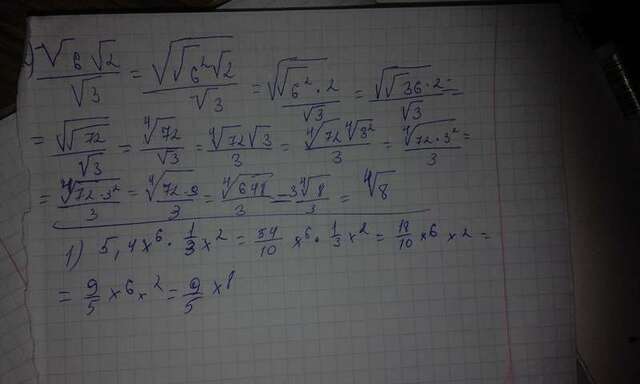 √(6√2)/√3 = √(√6²√2)/√3 = √√(6²·2)/√3 = √√(36·2)/√3 =
= √√72/√3 = ⁴√72/√3 = ⁴√72√3/3 = ⁴√72⁴√3²/3 = ⁴√(72·3²)/3 =
= ⁴√(72·3²)/3 = ⁴√(72·9)/3 = ⁴√648/3 = 3⁴√8/3 = ⁴√8
1) 5,4x⁶ · 1/3x² = 54/10x⁶ · 1/3x² = 18/10x⁶x² =
= 9/5x⁶x² = 9/5x⁸